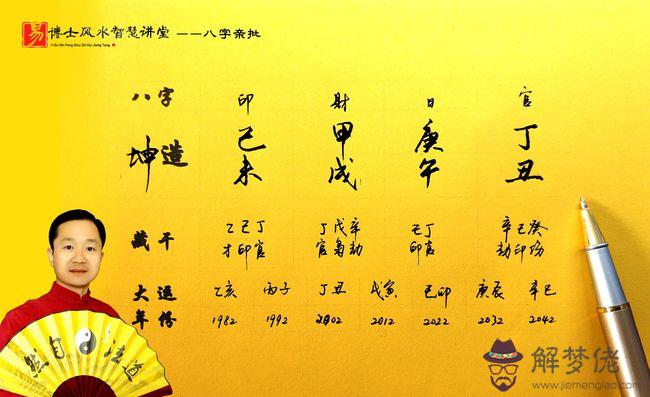 易 博士风水智慧讲堂 ——八字亲批
Yi Bo Shi Feng Shui Zhi Hui Jiang Tang
八字 印 财 日 官
坤造 己 甲 庚 丁
未 戌 午 丑
藏干 乙己丁 丁戊辛 己丁 辛己癸
才印官 官枭劫 印官 劫印伤
大运 乙亥 丙子 丁丑 戊寅 己卯 庚辰 辛巳
年份 1982 1992 2002 2012 2022 2032 2042
然自法道
解梦佬
www.jiemenglao.com